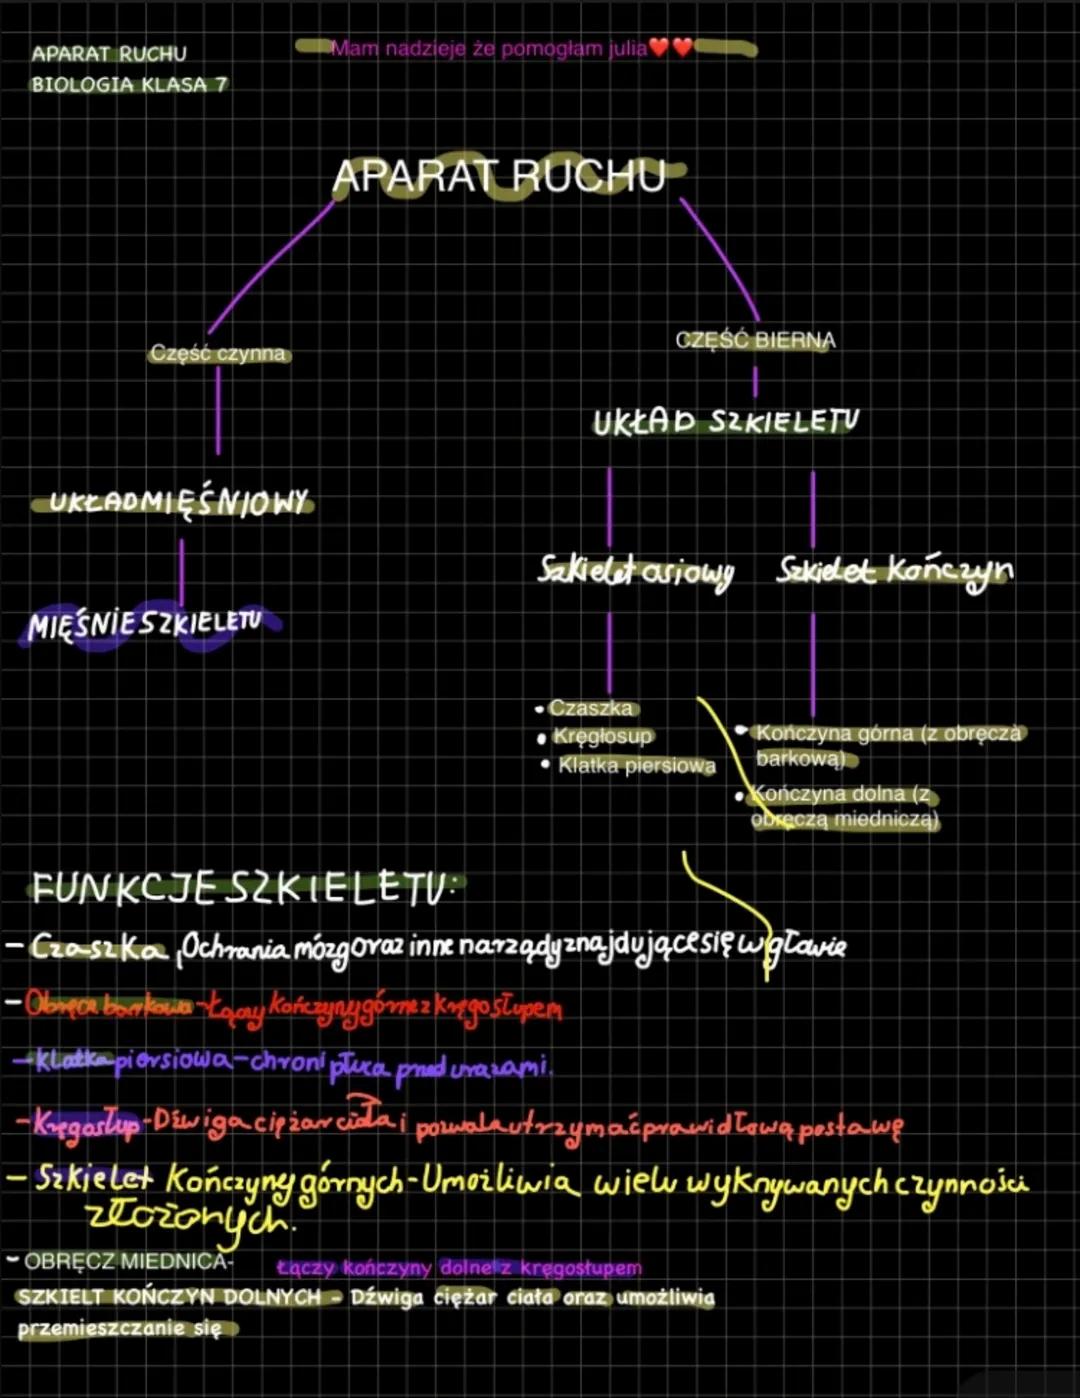 APARAT RUCHU
BIOLOGIA KLASA 7
Mam nadzieje że pomogłam julia❤️❤️
APARAT RUCHU
Część czynna
CZĘŚĆ BIERNA
UKŁAD SZKIELETU
UKŁAD MIĘŚNIOWY
Szkielet osiowy
Szkielet Kończyn
MIĘŚNIE SZKIELETU
• Czaszka
• Kręgłosup
• Klatka piersiowa
• Kończyna górna (z obręczà
barkową)
• Kończyna dolna (z
obręczą miedniczą)
FUNKCJE SZKIELETU:
- Czaszka, Ochrania mózg oraz inne narządy znajdujące się w głowie
- Obręcz barkowa - Łączy kończyny górne z kręgosłupem
- Klatka piersiowa - chroni płuca przed urazami.
- Kręgosłup - Dźwiga ciężar ciała i pozwala utrzymać prawidłową postawę
- Szkielet Kończyny górnych - Umożliwia wielu wyknywanych czynności
złożonych.
- OBRĘCZ MIEDNICA- Łączy kończyny dolne z kręgosłupem
SZKIELT KOŃCZYN DOLNYCH - Dźwiga ciężar ciała oraz umożliwia
przemieszczanie się